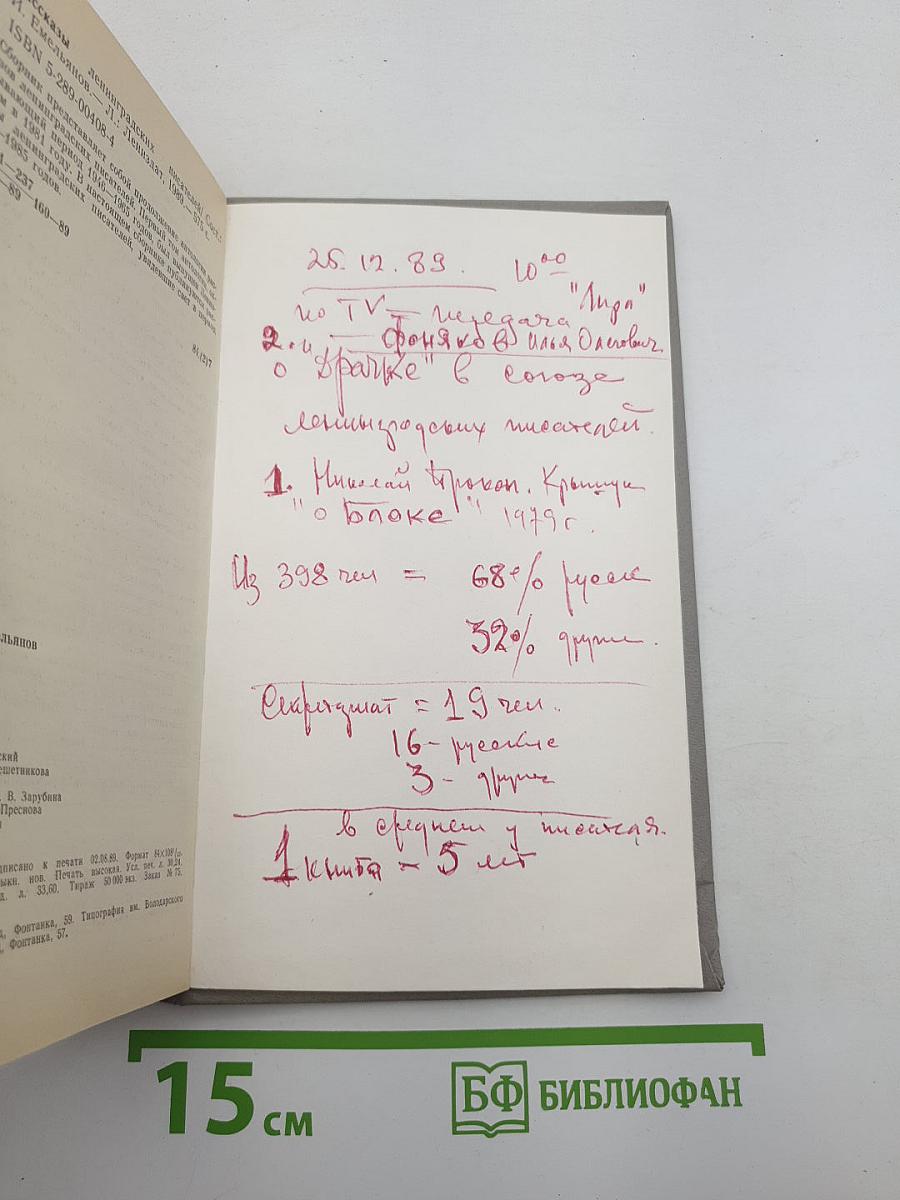 ленинградских писателей/ Сост.:
И. Емельянов.— Л.: Лениздат, 1989.— 575 с.
ISBN 5-289-00408-4
Сборник представляет собой продолжение антологии
ленинградских писателей. Первый том антологии,
период 1946—1965 годов, был выпущен
в 1981 году. В настоящем сборнике публикуются
ленинградских писателей, увидевшие свет в период
—1985 годов.
—237
—89—160—89
84(2)7
ельянов
ский
ешетникова
. В. Зарубина
Преснова
дписано к печати 02.08.89. Формат 84×108¹/₃₂.
Печать высокая. Усл. печ. л. 30,24.
д. л. 33,60. Тираж 50 000 экз. Заказ № 75.
Фонтанка, 59. Типография им. Володарского
Фонтанка, 57.
25.12.89. 10⁰⁰
по TV — передача "Лира"
2. и — Фоняков Илья Олегович
о "Драчке" в союзе
ленинградских писателей.
1. Николай Прокоп. Крыщук
"о Блоке" 1979 г.
Из 398 чел = 68% русск
32% другие.
Секретариат = 19 чел.
16 - русские
3 - другие
в среднем у писателя.
1 книга = 5 лет
15 см
БФ БИБЛИОФАН